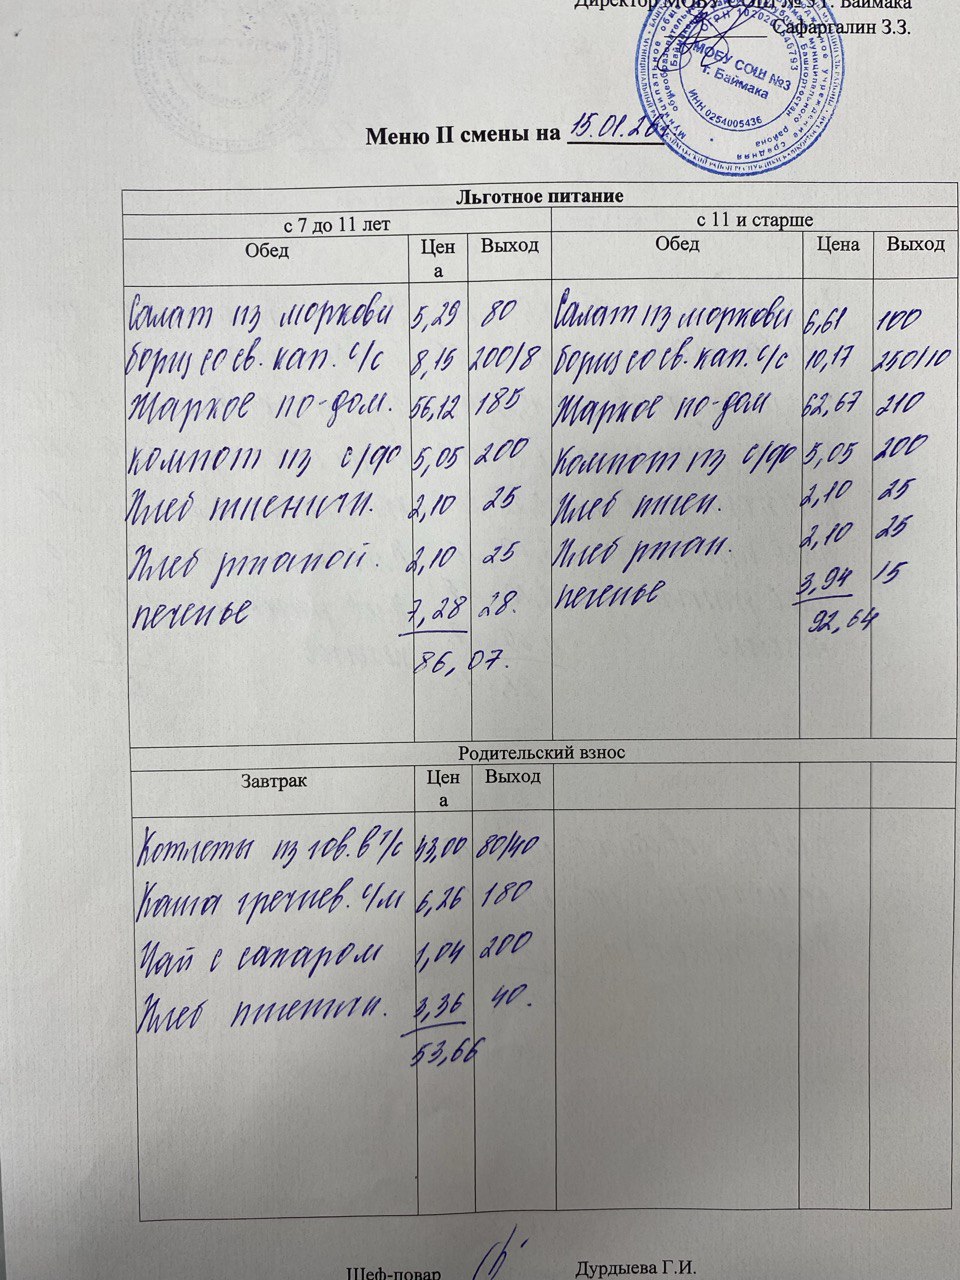 Директор МОБУ СОШ № 3 г. Баймака
Сафаргалин З.З.
МОБУ СОШ №3
г. Баймака
ИНН 0254005436
Меню II смены на 15.01.26г
Льготное питание
с 7 до 11 лет с 11 и старше
Обед Цена Выход Обед Цена Выход
Салат из моркови 5,29 80 Салат из моркови 6,61 100
борщ со св. кап. с/с 8,15 200/8 борщ со св. кап. с/с 10,17 250/10
Жаркое по-дом. 56,12 185 Жаркое по-дом 62,67 210
компот из с/фр 5,05 200 Компот из с/фр 5,05 200
Хлеб пшенич. 2,10 25 Хлеб пшен. 2,10 25
Хлеб ржаной. 2,10 25 Хлеб ржан. 2,10 25
печенье 7,28 28. печенье 3,94 15
86,07. 92,64
Родительский взнос
Завтрак Цена Выход
Котлеты из гов. в т/с 43,00 80/40
Каша гречнев. с/м 6,26 180
Чай с сахаром 1,04 200
Хлеб пшенич. 3,36 40.
53,66
Шеф-повар Дурдыева Г.И.